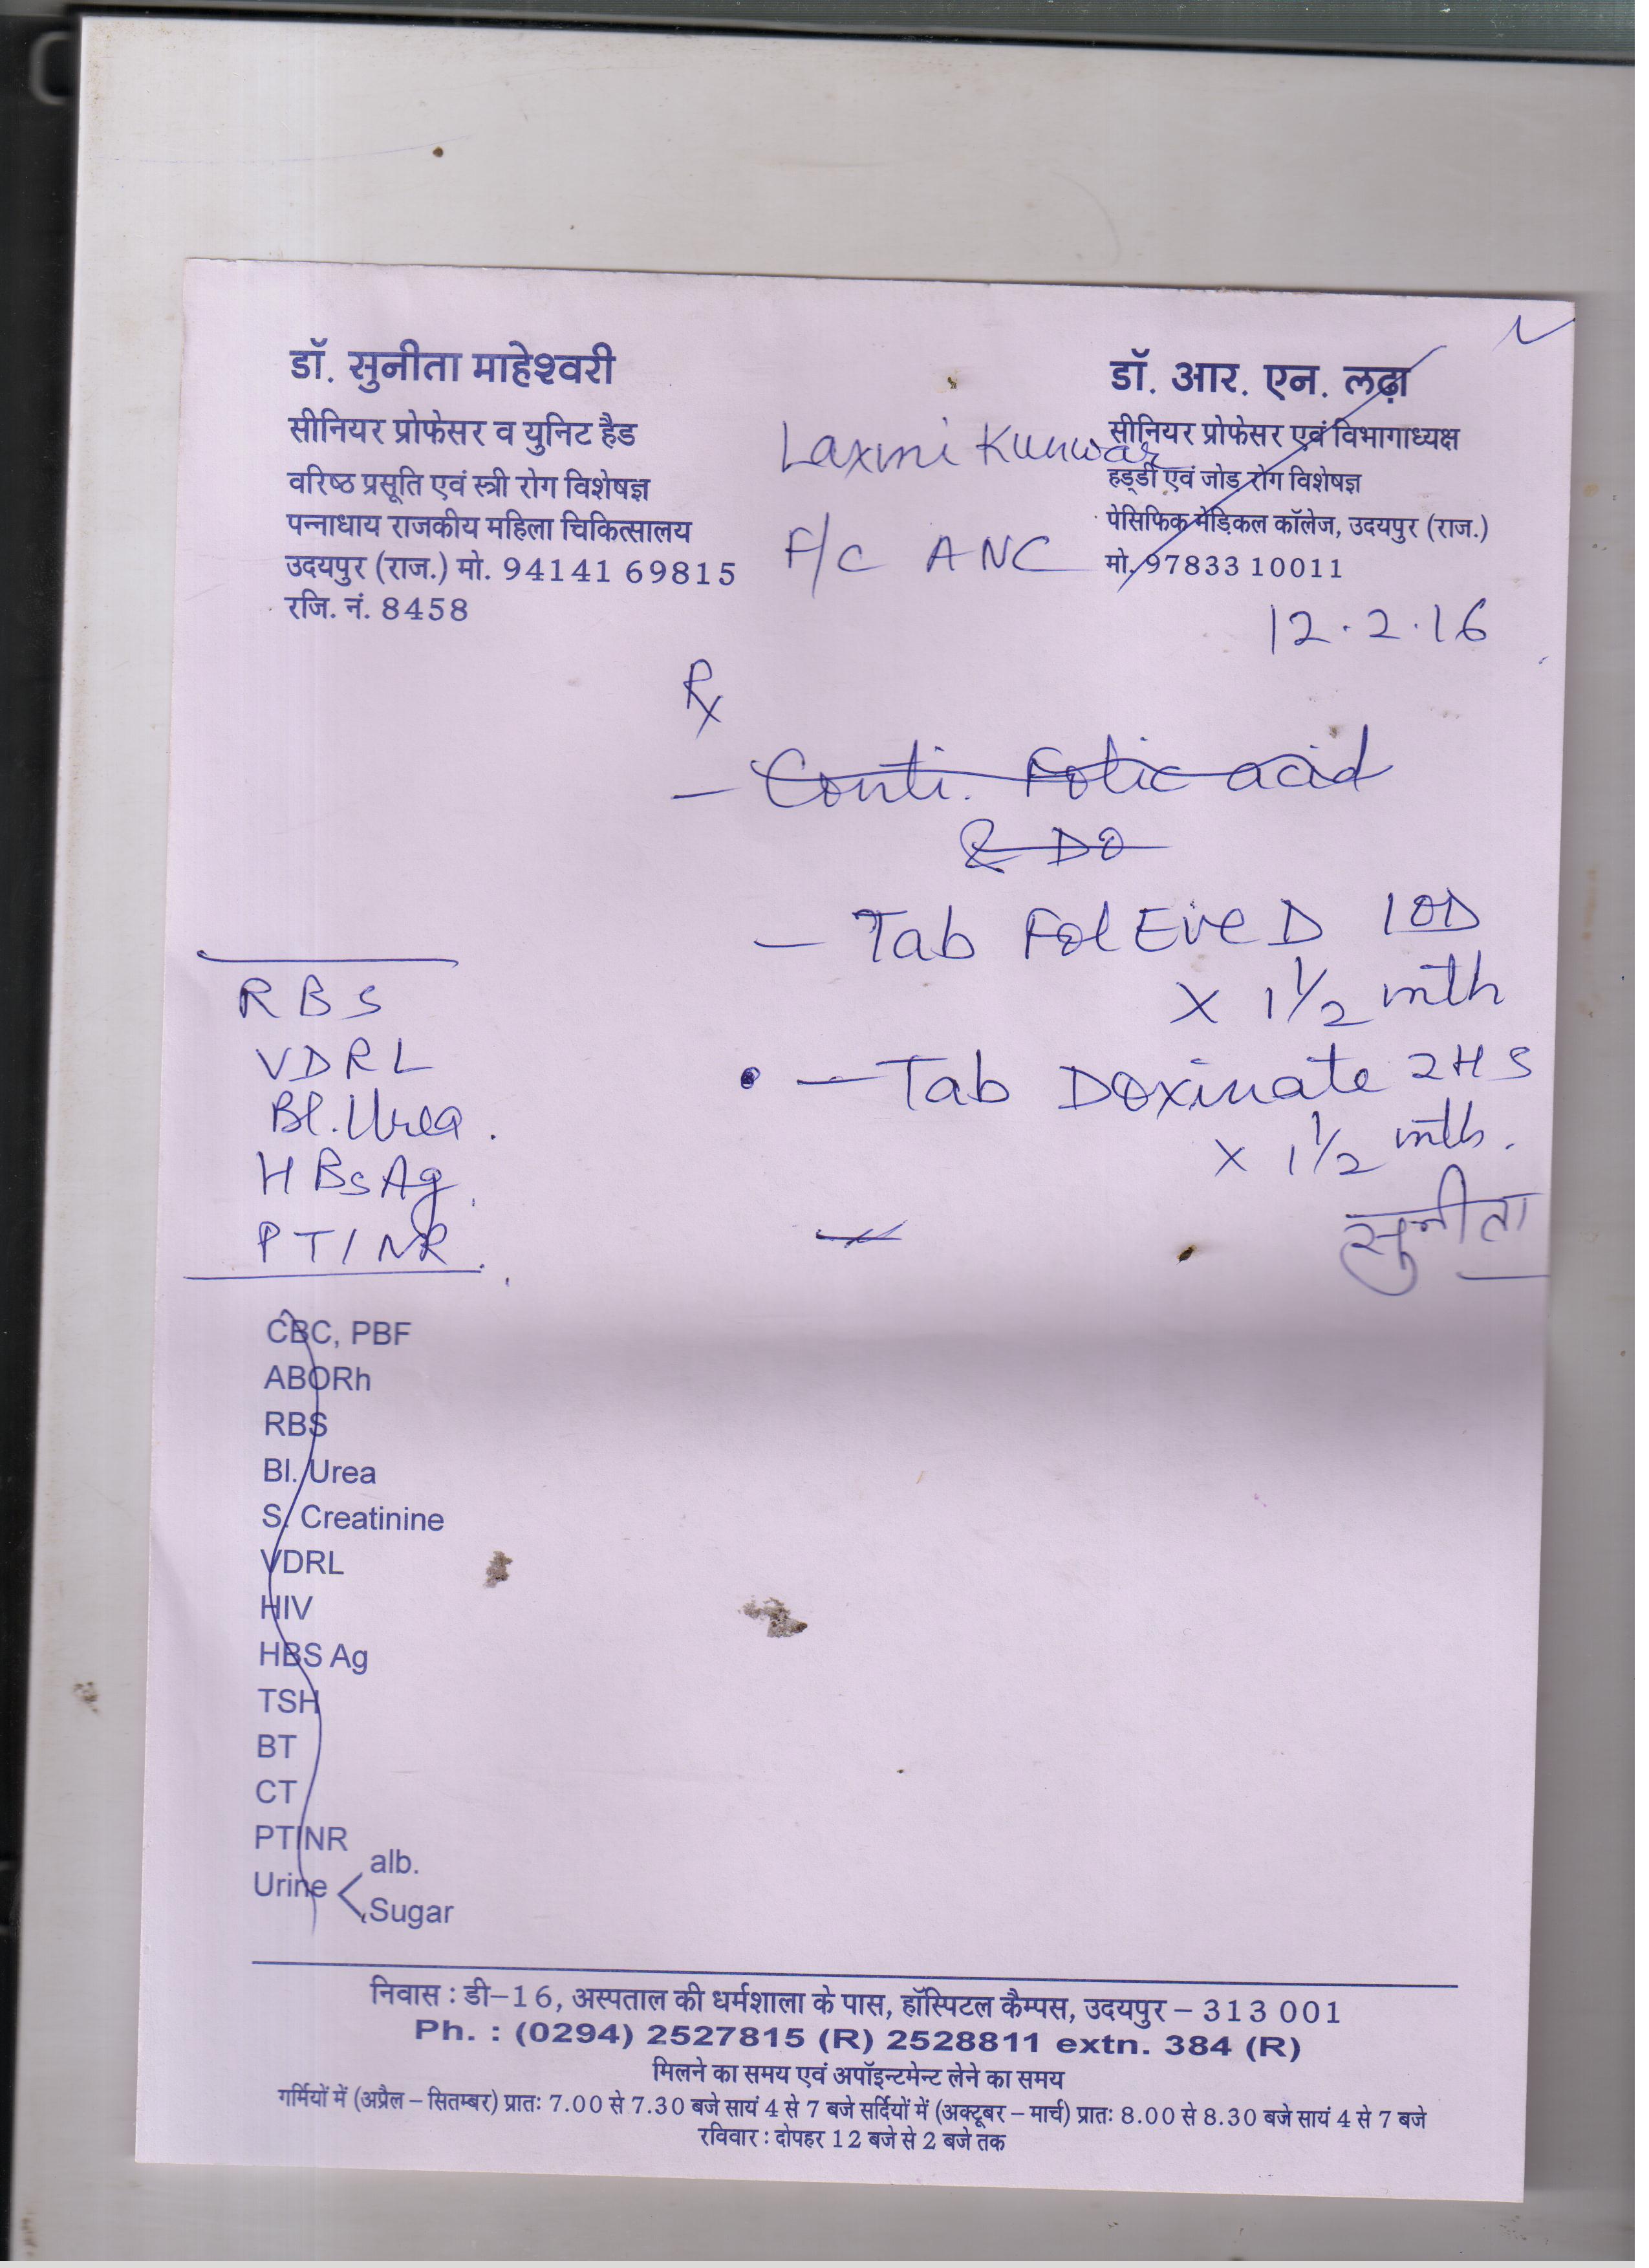 डॉ. सुनीता माहेश्वरी
सीनियर प्रोफेसर व युनिट हैड
वरिष्ठ प्रसूति एवं स्त्री रोग विशेषज्ञ
पन्नाधाय राजकीय महिला चिकित्सालय
उदयपुर (राज.) मो. 94141 69815
रजि. नं. 8458
Laxmi Kunwar
F/C ANC
डॉ. आर. एन. लढ़ा
सीनियर प्रोफेसर एवं विभागाध्यक्ष
हड्डी एवं जोड़ रोग विशेषज्ञ
पेसिफिक मेडिकल कॉलेज, उदयपुर (राज.)
मो. 97833 10011
12.2.16
Rx
- Conti. Folic acid
& DO
- Tab Fol Eve D 1 OD
x 1 1/2 mth
- Tab Doxinate 2 HS
x 1 1/2 mth.
सुनीता
RBS
VDRL
Bl. Urea.
HBsAg.
PT/NR.
CBC, PBF
ABORh
RBS
Bl. Urea
S. Creatinine
VDRL
HIV
HBS Ag
TSH
BT
CT
PTINR
Urine < alb.
Sugar
निवास : डी-16, अस्पताल की धर्मशाला के पास, हॉस्पिटल कैम्पस, उदयपुर - 313 001
Ph. : (0294) 2527815 (R) 2528811 extn. 384 (R)
मिलने का समय एवं अपॉइन्टमेन्ट लेने का समय
गर्मियों में (अप्रैल - सितम्बर) प्रातः 7.00 से 7.30 बजे सायं 4 से 7 बजे सर्दियों में (अक्टूबर - मार्च) प्रातः 8.00 से 8.30 बजे सायं 4 से 7 बजे
रविवार : दोपहर 12 बजे से 2 बजे तक